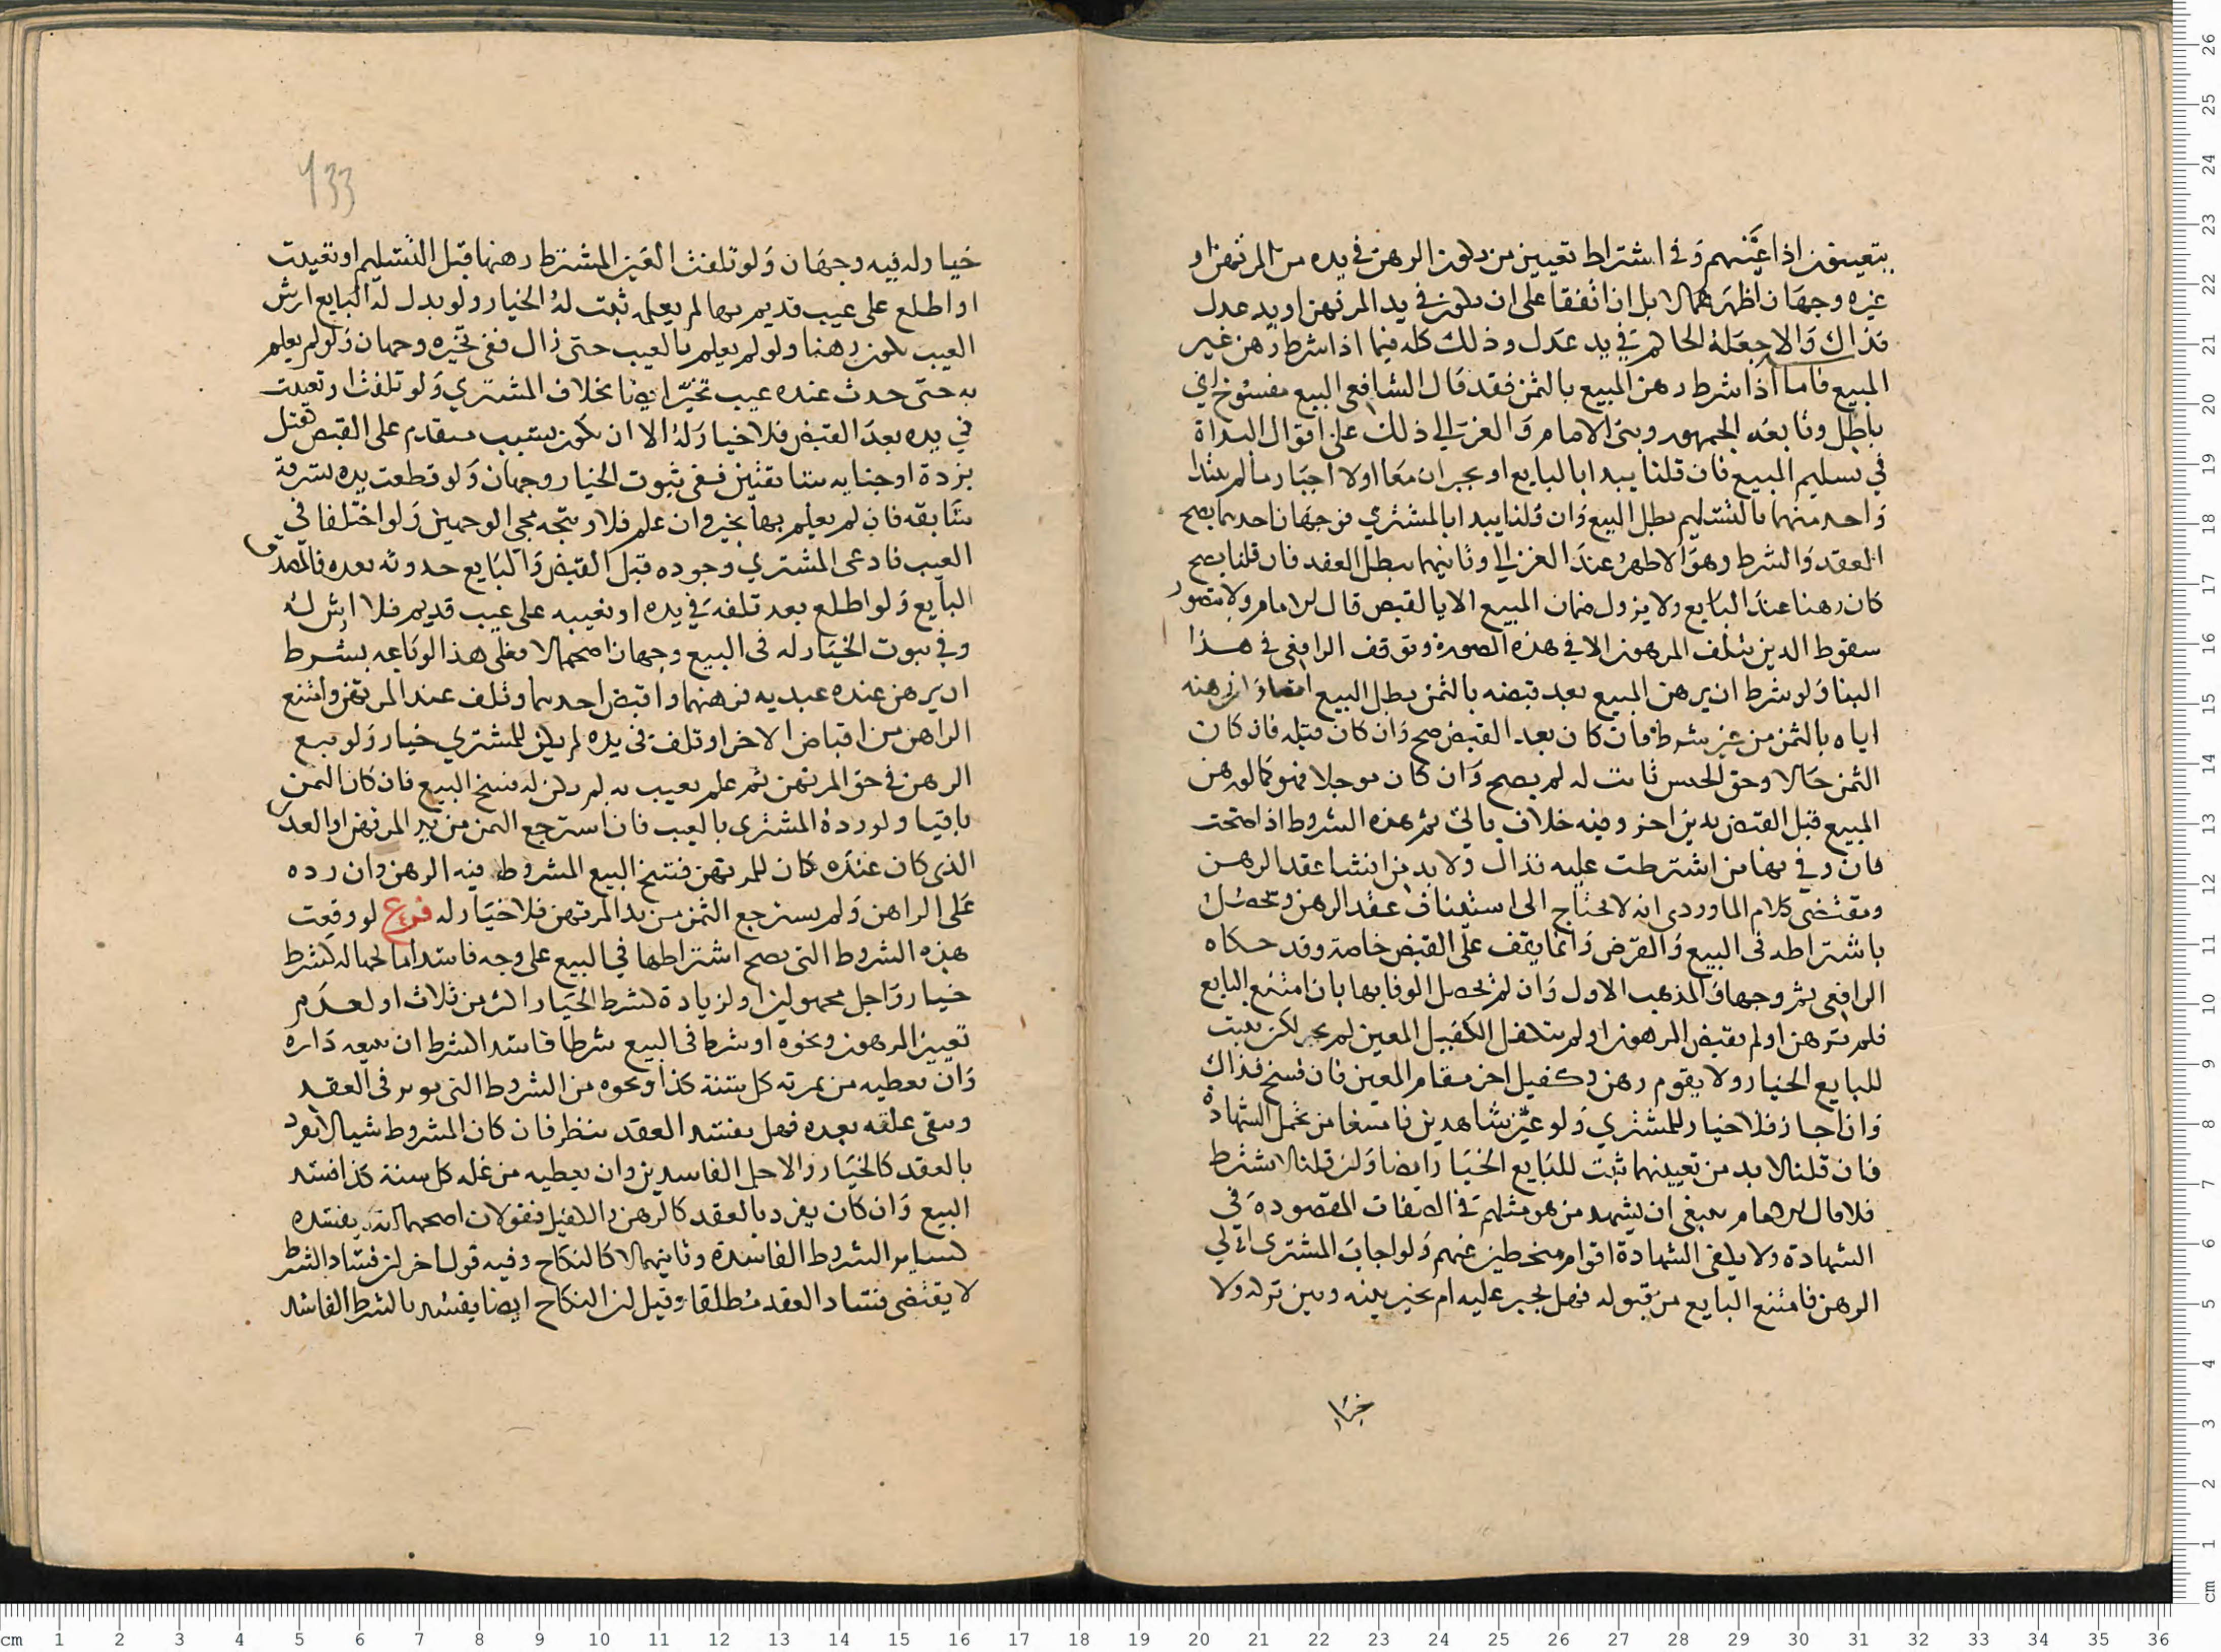 يتعينون اذا عينهم وفي اشتراط تعيين من يكون الرهن في يده من المرتهن او
غيره وجهان اظهرهما لا بل ان اتفقا على ان يكون في يد المرتهن او يد عدل
فذاك والا جعله الحاكم في يد عدل وذلك كله فيما اذا شرط رهن غير
المبيع فاما اذا شرط رهن المبيع بالثمن فقد قال الشافعي البيع مفسوخ اي
باطل وتابعه الجمهور وبنى الامام والغزالي ذلك على اقوال البداة
في تسليم المبيع فان قلنا يبدا بالبايع او يجبران معا او لا اجبار ما لم يبتدا
واحد منهما بالتسليم بطل البيع وان قلنا يبدا بالمشتري فوجهان احدهما يصح
العقد والشرط وهو الاظهر عند الغزالي وثانيهما يبطل العقد فان قلنا يصح
كان رهنا عند البايع ولا يزول ضمان المبيع الا بالقبض قال الامام ولا يتصور
سقوط الدين بتلف المرهون الا في هذه الصورة وتوقف الرافعي في هذا
البنا ولو شرط ان يرهن المبيع بعد قبضه بالثمن بطل البيع ايضا وان رهنه
اياه بالثمن من غير شرط فان كان بعد القبض صح وان كان قبله فان كان
الثمن حالا وحق الحبس ثابت له لم يصح وان كان موجلا فهو كما لو رهن
المبيع قبل القبض بدين اخر وفيه خلاف ياتي ثم هذه الشروط اذا صحت
فان وفي بها من اشترطت عليه فذاك ولا بد من انشا عقد الرهن
ومقتضى كلام الماوردي انه لا يحتاج الى استيناف عقد الرهن ويحصل
باشتراطه في البيع والقرض وانما يقف على القبض خاصة وقد حكاه
الرافعي ثم وجها والمذهب الاول وان لم يحصل الوفا بها بان امتنع البايع
فلم يرهن او لم يقبض المرهون او لم يتكفل الكفيل المعين لم يجبر لكن يثبت
للبايع الخيار ولا يقوم رهن وكفيل اخر مقام المعين فان فسخ فذاك
وان اجاز فلا خيار للمشتري ولو عين شاهدين فامتنعا من تحمل الشهادة
فان قلنا لا بد من تعيينهما ثبت للبايع الخيار ايضا وان قلنا لا يشترط
فلا قال الامام ينبغي ان يشهد من هو مثلهم في الصفات المقصودة في
الشهادة ولا يكفي الشهادة اقوام منحطين عنهم ولو اجاب المشتري الى
الرهن فامتنع البايع من قبوله فهل يجبر عليه ام يخير بينه وبين تركه ولا
خيار
133
خيار له فيه وجهان ولو تلفت العين المشترط رهنها قبل التسليم او تعيبت
او اطلع على عيب قديم بها لم يعلمه ثبت له الخيار ولو بدل له البايع ارش
العيب ليكون رهنا ولو لم يعلم بالعيب حتى زال ففي تخيره وجهان ولو لم يعلم
به حتى حدث عنده عيب تخير ايضا بخلاف المشتري ولو تلفت او تعيبت
في يده بعد القبض فلا خيار له الا ان يكون بسبب متقدم على القبض كقتل
بردة او جناية سابقتين ففي ثبوت الخيار وجهان ولو قطعت يده بسرقة
سابقه فان لم يعلم بها تخير وان علم فلا ويتجه مجي الوجهين ولو اختلفا في
العيب فادعى المشتري وجوده قبل القبض والبايع حدوثه بعده فالمصدق
البايع ولو اطلع بعد تلفه في يده او تعيبه على عيب قديم فلا ارش له
وفي ثبوت الخيار له في البيع وجهان اصحهما لا فعلى هذا لو باعه بشرط
ان يرهن عنده عبديه فرهنهما واقبض احدهما وتلف عند المرتهن وامتنع
الراهن من اقباض الاخر او تلف في يده لم يكن للمشتري خيار ولو بيع
الرهن في حق المرتهن ثم علم بعيب به لم يكن له فسخ البيع فان كان الثمن
باقيا ولو رده المشتري بالعيب فان استرجع الثمن من يد المرتهن او العدل
الذي كان عنده كان للمرتهن فسخ البيع المشروط فيه الرهن وان رده
على الراهن ولم يسترجع الثمن من يد المرتهن فلا خيار له فرع لو وقعت
هذه الشروط التي يصح اشتراطها في البيع على وجه فاسد اما لجهالة كشرط
خيار واجل مجهولين او لزيادة كشرط الخيار اكثر من ثلاث او لعدم
تعيين المرهون ونحوه او شرط في البيع شرطا فاسدا كشرط ان يبيعه داره
وان يعطيه من ثمرته كل سنة كذا ونحوه من الشروط التي توثر في العقد
وتبقى علقه بعده فهل يفسد العقد ينظر فان كان المشروط شيا لا يفرد
بالعقد كالخيار والاجل الفاسدين وان يعطيه من غله كل سنة كذا فسد
البيع وان كان يفرد بالعقد كالرهن والكفيل فقولان اصحهما انه يفسده
كساير الشروط الفاسدة وثانيهما لا كالنكاح وفيه قول اخر ان فساد الشرط
لا يقتضي فساد العقد مطلقا وقيل ان النكاح ايضا يفسد بالشرط الفاسد